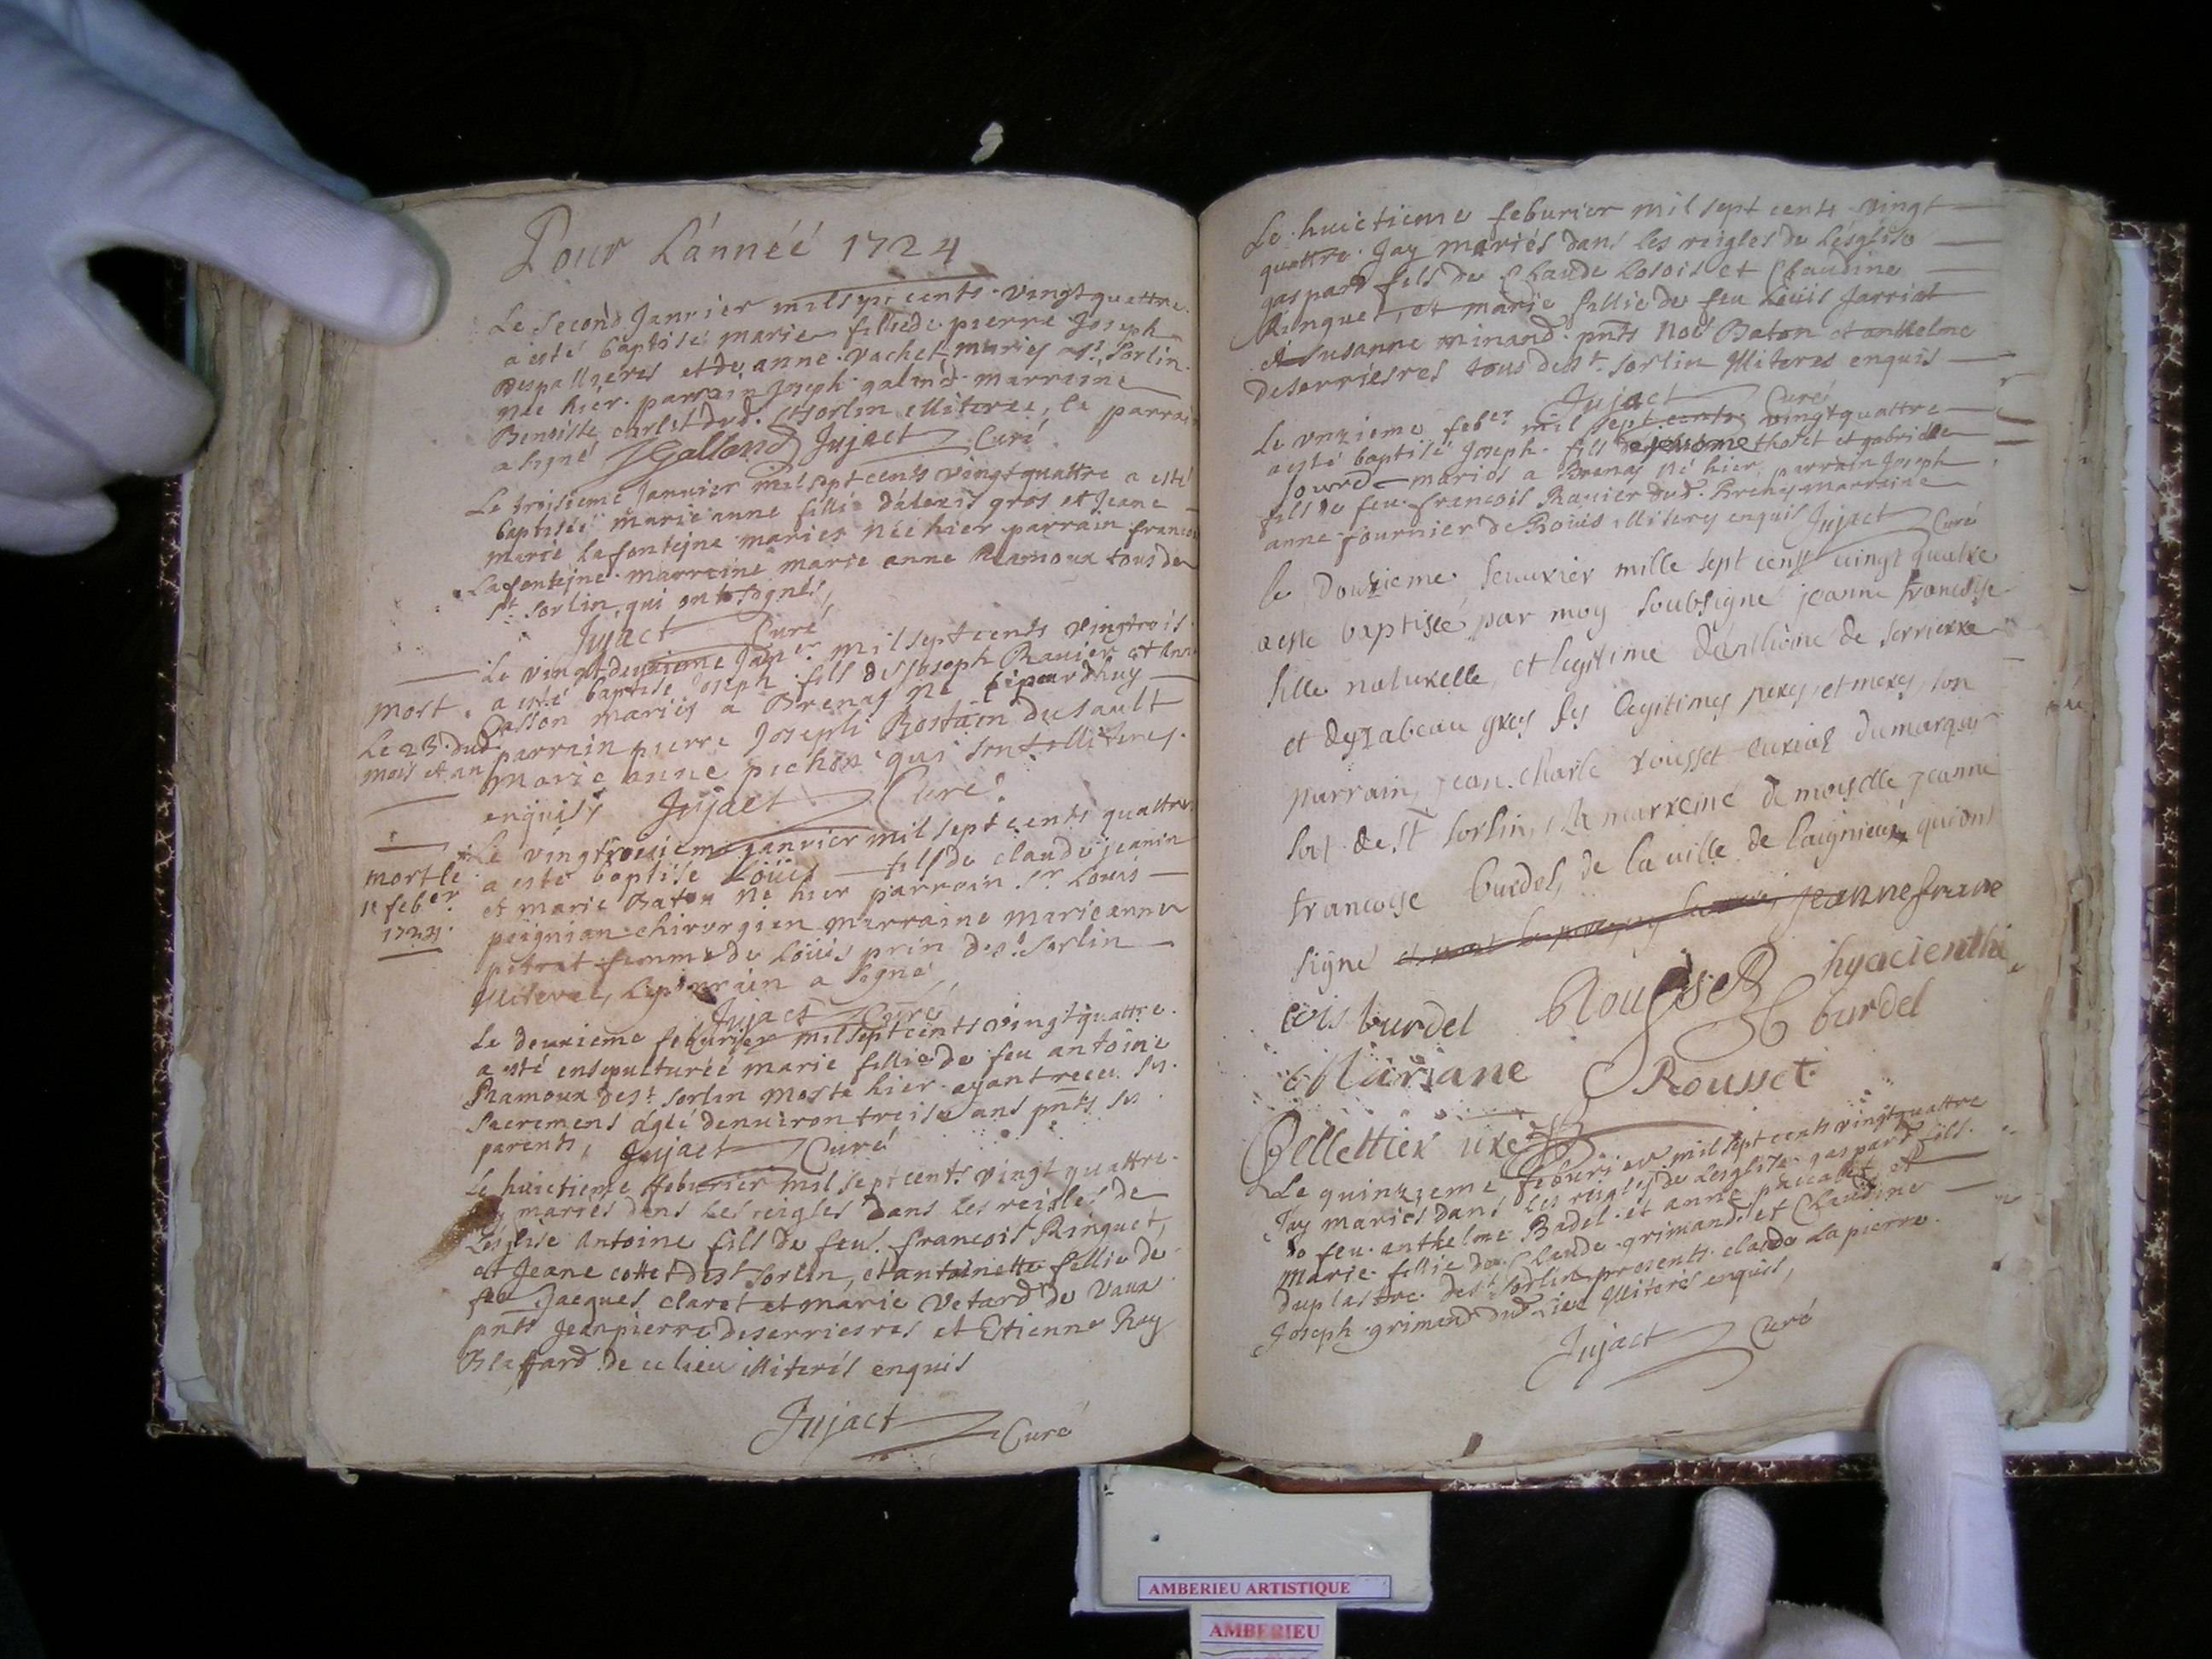 Pour L'année 1724
Le second Janvier mil sept cents vingt quattre
a esté baptisé marie fillie de pierre Joseph
Despallieres et de anne vachet mariés a st Sorlin
née hier parrain Joseph galand marraine
Benoiste carlet dud. St Sorlin illiteree, le parrain
a signé JGalland Jujact Curé
Le troisieme Janvier mil sept cents vingt quattre a esté
baptisée marie anne fillie d'alexis gros et Jeane
marie Lafontejne mariés née hier parrain francois
Lafontejne marraine marie anne Ramoux tous de
st Sorlin, qui ont signés,
Jujact Curé
Le vingt deuxieme Janer mil sept cents vingtrois
a esté baptisé Joseph fils de Joseph Ravier et Anne
Casson mariés a Brenas né
parrain pierre Joseph Rostain du sault
marie anne pichon qui sont illiterés
enquis, Jujact Curé
mort
Le 23 dud
mois et an
Le vingtroisieme janvier mil sept cents quattre
a esté baptisé Loüis fils de claude jeanin
et marie Baton né hier parrain Sr Louis
peignian chirurgien marraine marie anne
petrat femme de Loüis prin de st Sorlin
illiteree, le parrain a signé,
Jujact Curé
mort le
11 feber
1724.
Le deuxieme feburier mil sept cents vingt quattre
a esté ensepulturéé marie fillie de feu antoine
Ramoux de st Sorlin morte hier ayant receu ses
sacremens agéé denviron treise ans pnts ses
parents, Jujact Curé
Le huictieme feburier mil sept cents vingt quattre
mariés dans les reigles dans les reigles de
Lesglise Antoine fils de feu francois Ringuet,
et Jeane cottet de st Sorlin, et antoinette fillie de
feu Jacques claret et marie Vetard de Vaux
pnts Jean pierre deserriesres et Etienne Roy
Blaffard de ce lieu illiterés enquis
Jujact Curé
Le huictieme feburier mil sept cents vingt
quattre Jay mariés dans les reigles de Lesglise
gaspard fils de Claude Losois et Claudine
Ringuet, et marie fillie de feu Loüis Jarriat
et Susanne minand pnts Noé Baton et anthelme
deserriesres tous de st Sorlin illiteres enquis
Jujact Curé
Le vnzieme feber mil sept cents vingt quattre
a esté baptisé Joseph fils de thoret et gabrielle
Jourd mariés a Brenas né hier, parrain Joseph
fils de feu francois Ravier dud. Brenas marraine
anne fournier de Rouis illiterés enquis Jujact Curé
le Douzieme feuurier mille sept cent uingt quatre
a este baptisée par moy soubsigne jeanne francoise
fille naturelle et legitime d'anthéme de serrierre
et dysabeau gros ses legitimes peres et meres, son
parrain, jean charle rousset curial du marquisat
de St Sorlin, La marreine demoiselle jeanne
francoise burdel, de la uille de laignieux, qui ont
signé jeanne francoise
burdel Rousset hyacienthe
burdel
Mariane Rousset
Pellettier
Le quinzieme feburier mil sept cents vingt quattre
Jay mariés dans les reigles de Lesglise gaspard fils
de feu anthelme Badel et anne et
marie fillie de Claude grimand et Claudine
duplastre de st Sorlin presents claude Lapierre
Joseph grimand dud. Lieu illiterés enquis,
Jujact Curé
AMBERIEU ARTISTIQUE
AMBERIEU